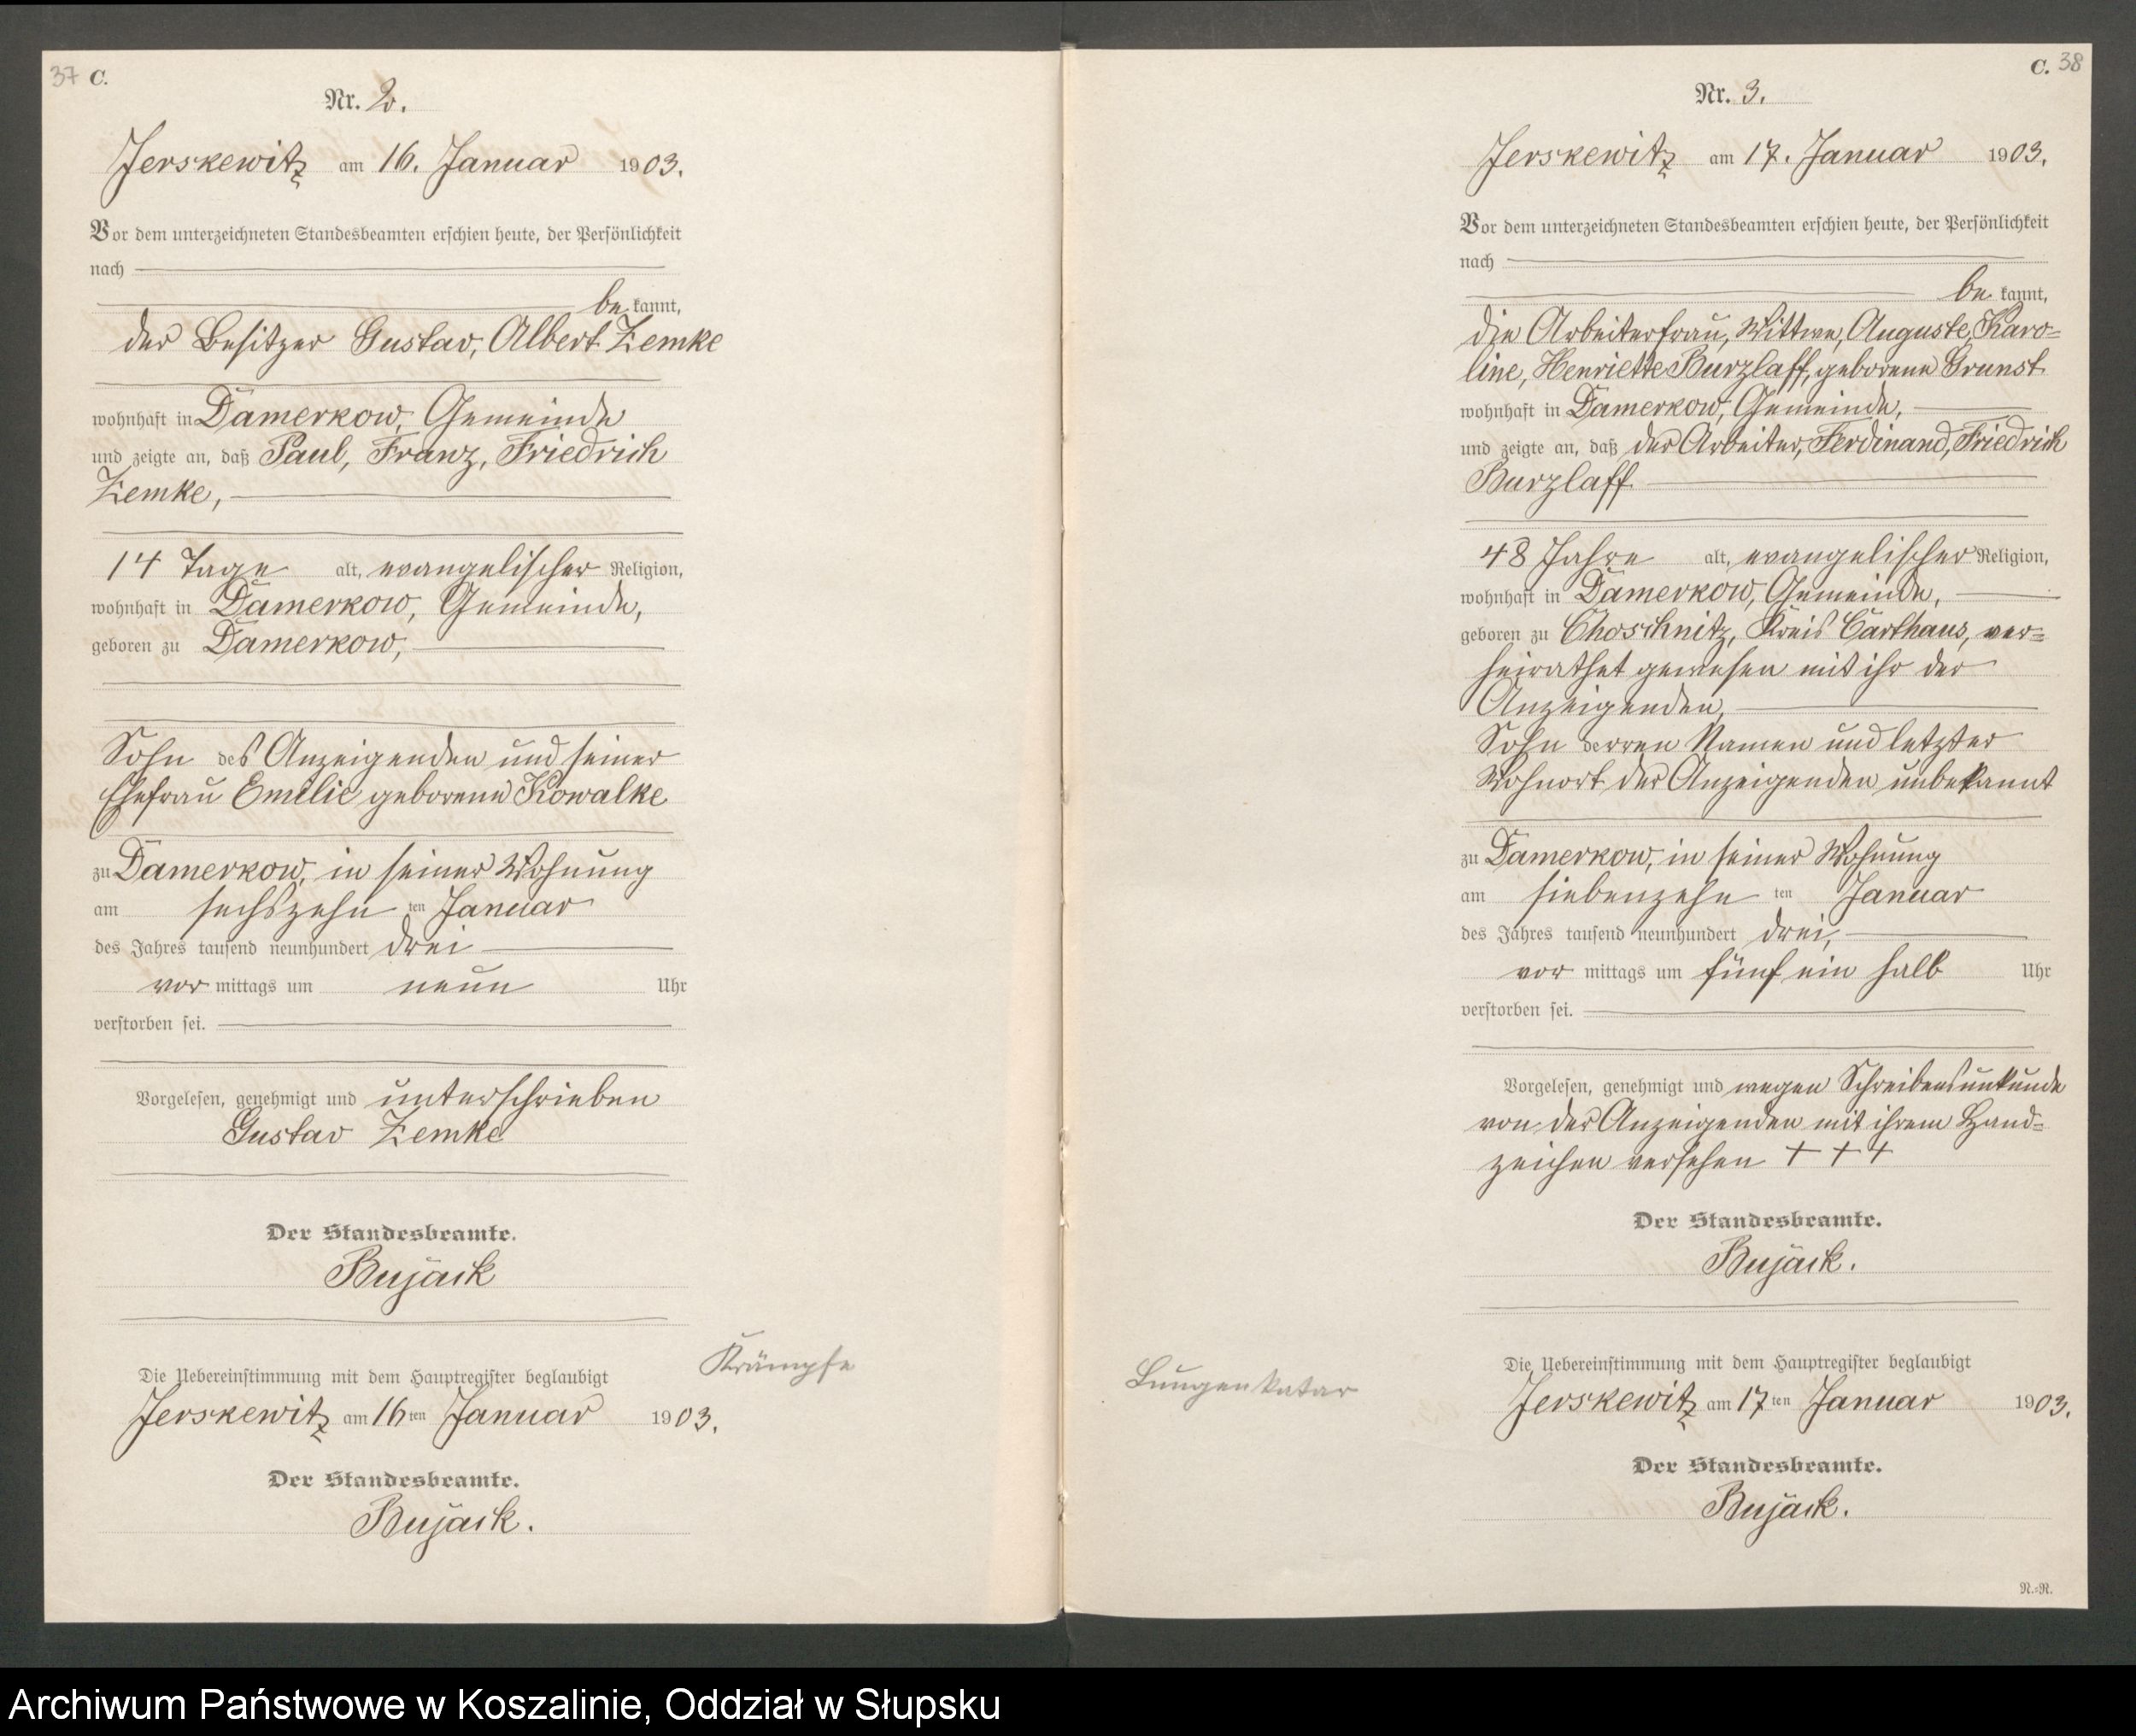 37 C.
Nr. 2.
Jerskewitz am 16. Januar 1903.
Vor dem unterzeichneten Standesbeamten erschien heute, der Persönlichkeit
nach
be kannt,
der Besitzer Gustav, Albert Zemke
wohnhaft in Damerkow, Gemeinde
und zeigte an, daß Paul, Franz, Friedrich
Zemke,
14 Tage alt, evangelischer Religion,
wohnhaft in Damerkow, Gemeinde,
geboren zu Damerkow,
Sohn des Anzeigenden und seiner
Ehefrau Emilie geborene Kowalke
zu Damerkow, in seiner Wohnung
am sechszehn ten Januar
des Jahres tausend neunhundert drei
vor mittags um neun Uhr
verstorben sei.
Vorgelesen, genehmigt und unterschrieben
Gustav Zemke
Der Standesbeamte.
Bujack
Krämpfe
Die Uebereinstimmung mit dem Hauptregister beglaubigt
Jerskewitz am 16ten Januar 1903.
Der Standesbeamte.
Bujack.
C. 38
Nr. 3.
Jerskewitz am 17. Januar 1903.
Vor dem unterzeichneten Standesbeamten erschien heute, der Persönlichkeit
nach
be kannt,
die Arbeiterfrau, Wittwe, Auguste, Karo=
line, Henriette Burzlaff, geborene Grunst
wohnhaft in Damerkow, Gemeinde,
und zeigte an, daß der Arbeiter, Ferdinand, Friedrich
Burzlaff.
48 Jahre alt, evangelischer Religion,
wohnhaft in Damerkow, Gemeinde,
geboren zu Choschnitz, Kreis Carthaus, ver=
heirathet gewesen mit ihr der
Anzeigenden,
Sohn derren Namen und letzter
Wohnort der Anzeigenden unbekannt
zu Damerkow, in seiner Wohnung
am siebenzehn ten Januar
des Jahres tausend neunhundert drei,
vor mittags um fünf ein halb Uhr
verstorben sei.
Vorgelesen, genehmigt und wegen Schreibensunkunde
von der Anzeigenden mit ihrem Hand=
zeichen versehen + + +
Der Standesbeamte.
Bujack.
Lungenkatar
Die Uebereinstimmung mit dem Hauptregister beglaubigt
Jerskewitz am 17ten Januar 1903.
Der Standesbeamte.
Bujack.
N.=N.
Archiwum Państwowe w Koszalinie, Oddział w Słupsku